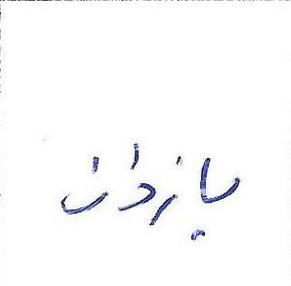 یازدان